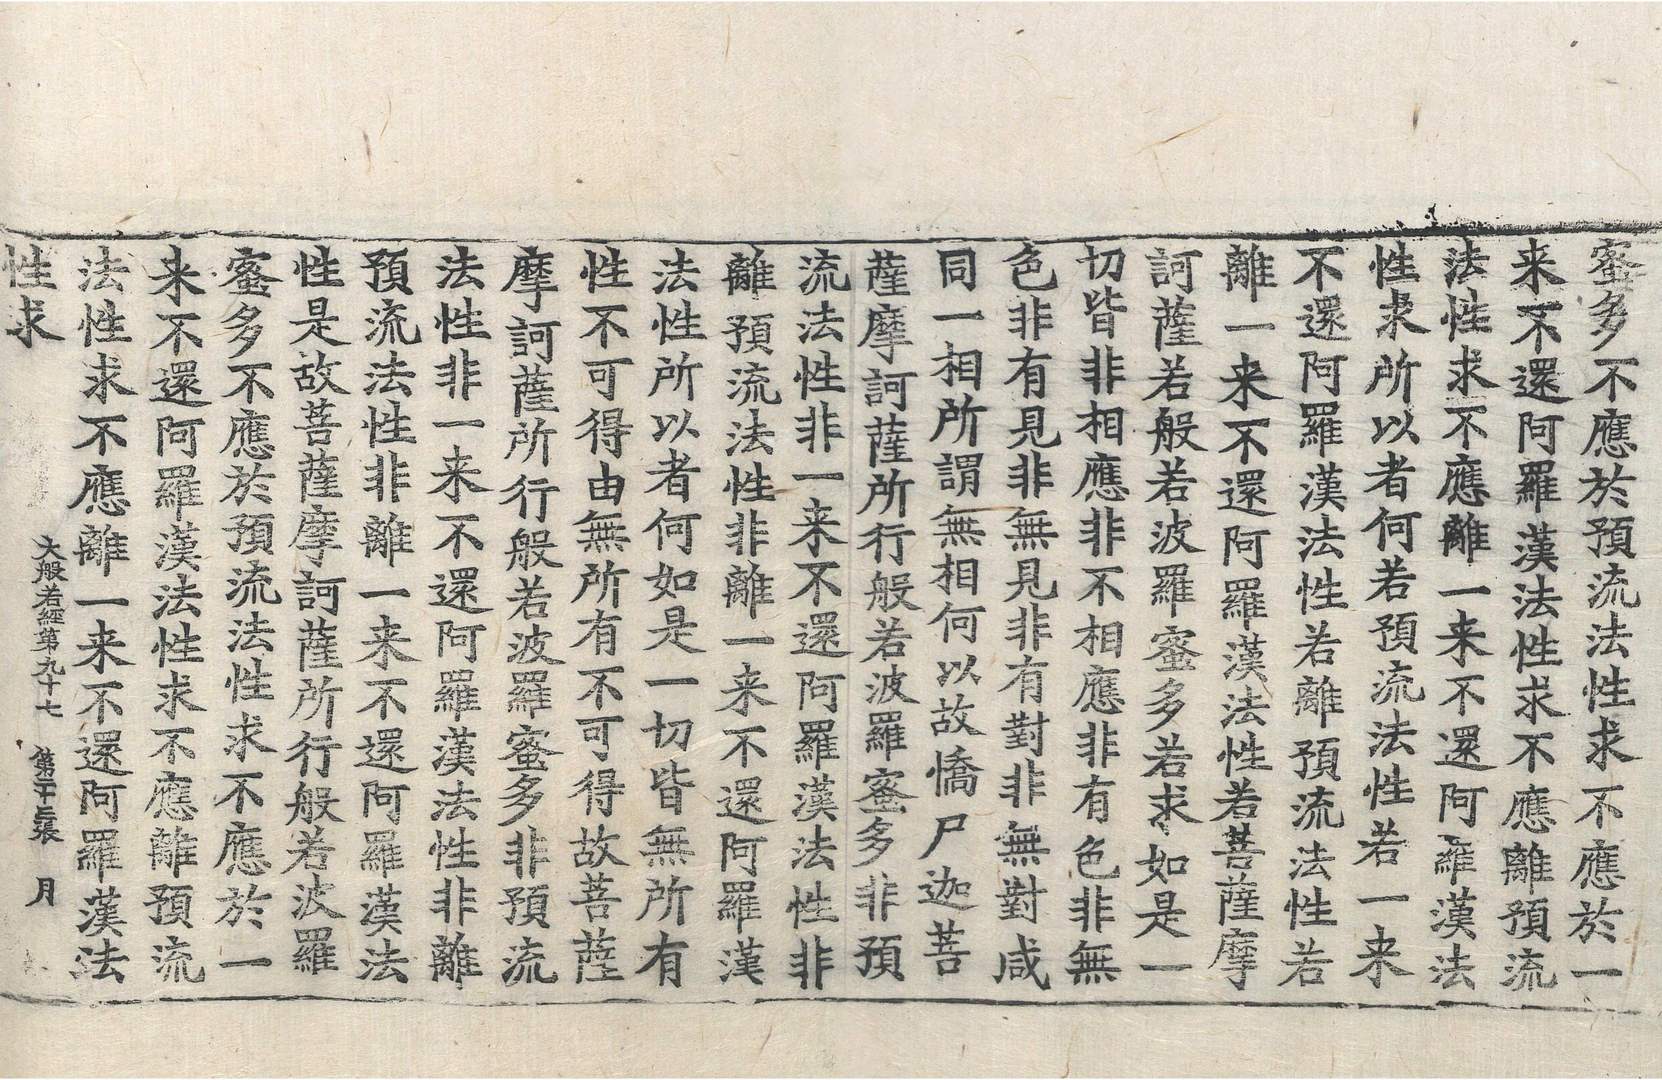 蜜多不應於預流法性求不應於一
来不還阿羅漢法性求不應離預流
法性求不應離一来不還阿羅漢法
性求所以者何若預流法性若一来
不還阿羅漢法性若離預流法性若
離一来不還阿羅漢法性若菩薩摩
訶薩若般若波羅蜜多若求如是一
切皆非相應非不相應非有色非無
色非有見非無見非有對非無對咸
同一相所謂無相何以故憍尸迦菩
薩摩訶薩所行般若波羅蜜多非預
流法性非一来不還阿羅漢法性非
離預流法性非離一来不還阿羅漢
法性所以者何如是一切皆無所有
性不可得由無所有不可得故菩薩
摩訶薩所行般若波羅蜜多非預流
法性非一来不還阿羅漢法性非離
預流法性非離一来不還阿羅漢法
性是故菩薩摩訶薩所行般若波羅
蜜多不應於預流法性求不應於一
来不還阿羅漢法性求不應離預流
法性求不應離一来不還阿羅漢法
性求
大般若經第九十七 第張 月